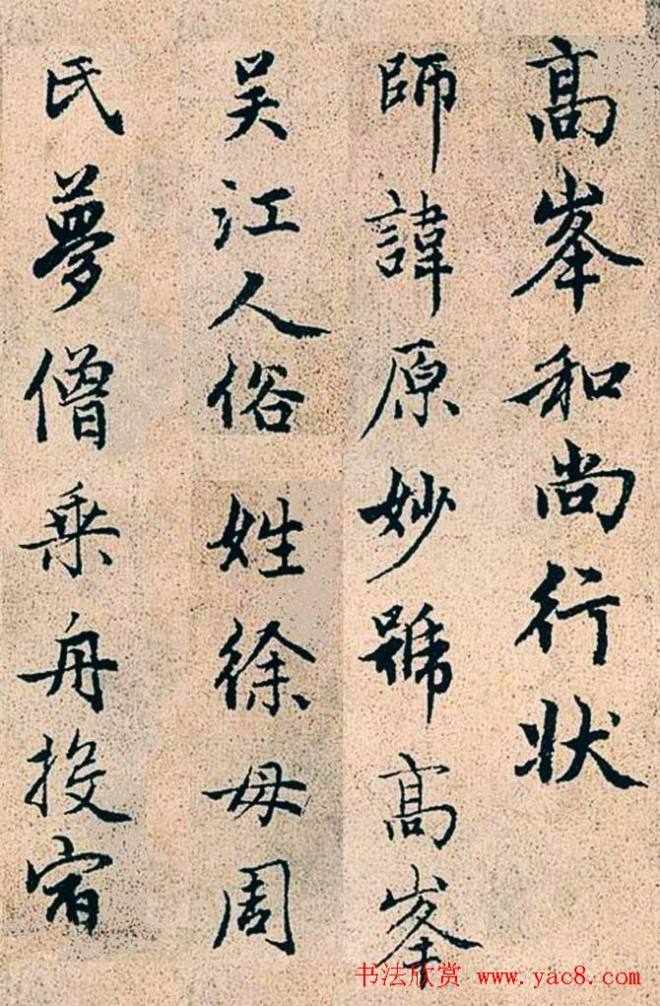 高峯和尚行状
師諱原妙號高峯
吴江人俗姓徐母周
氏夢僧乗舟投宿
书法欣赏 www.yac8.com